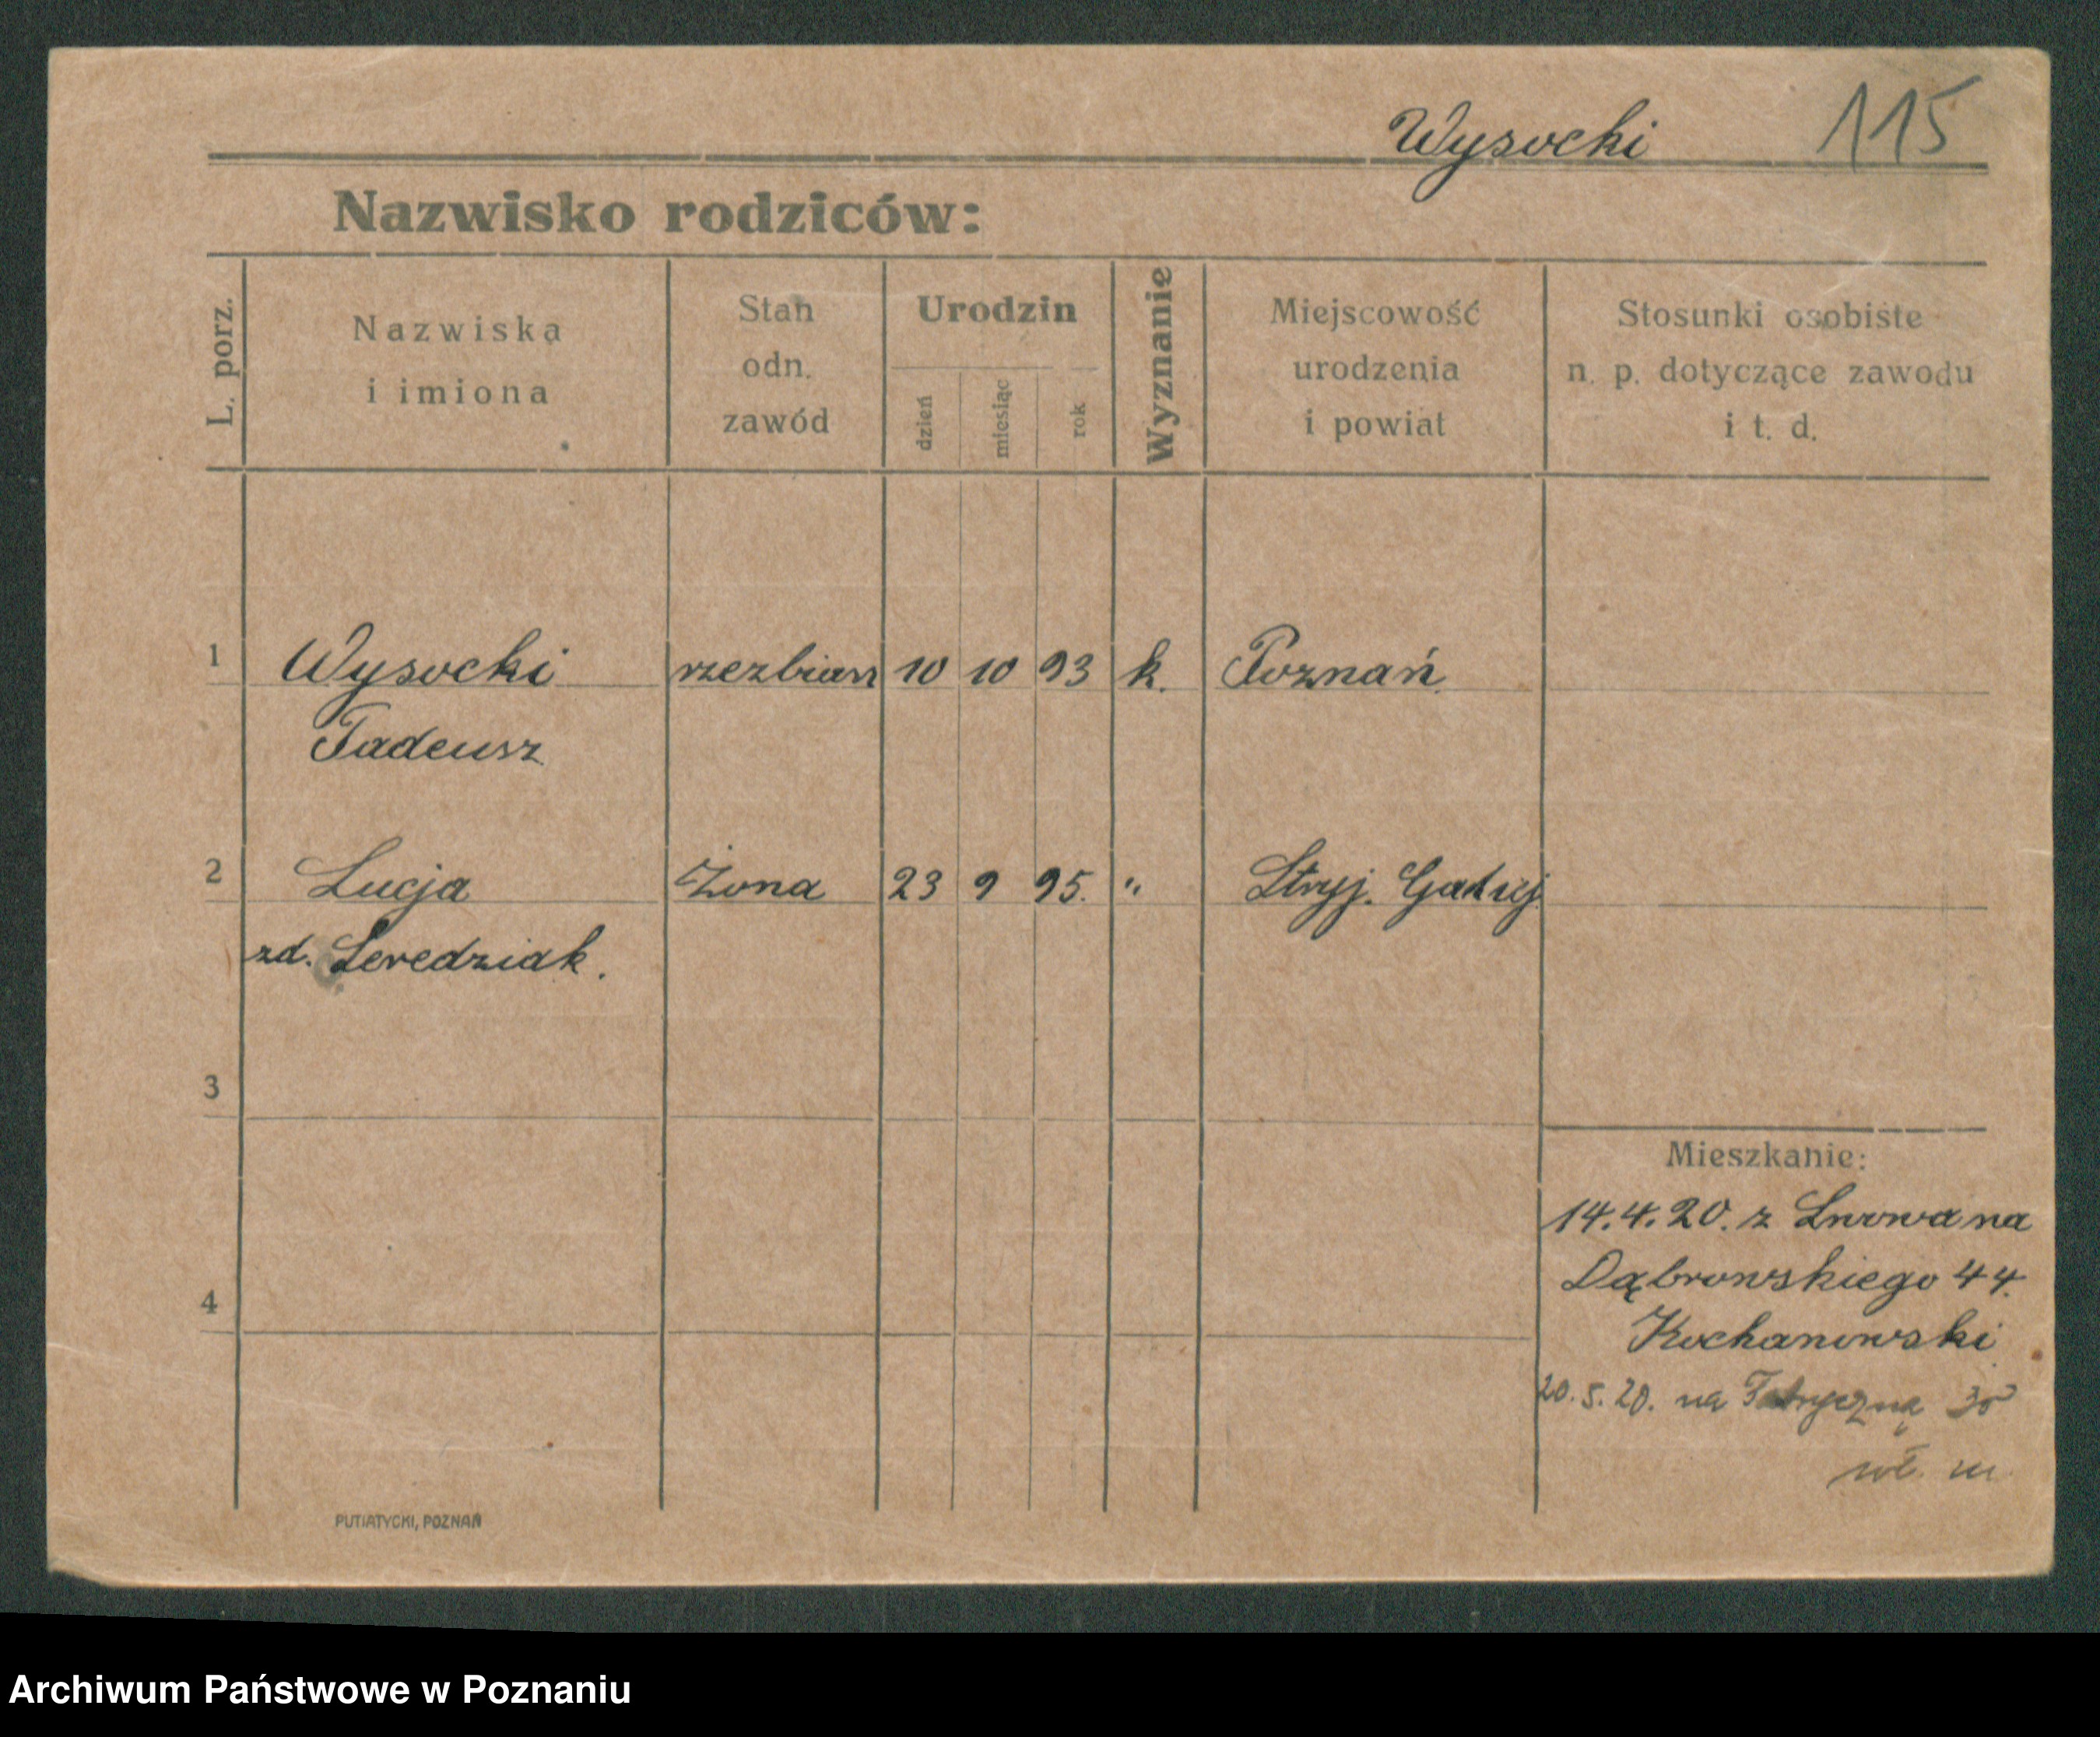 Wysocki 115
Nazwisko rodziców:
L. porz.
Nazwiska
i imiona
Stan
odn.
zawód
Urodzin
dzień
miesiąc
rok
Wyznanie
Miejscowość
urodzenia
i powiat
Stosunki osobiste
n. p. dotyczące zawodu
i t. d.
1 Wysocki rzezbiarz 10 10 93 k. Poznań
Tadeusz
2 Lucja Żona 23 9 95. " Stryj.
zd. Seredziak.
3
Mieszkanie:
14.4.20. z Lwowa na
Dąbrowskiego 44.
4
Kochanowski
20.5.20. na 30
wł. m.
PUTIATYCKI, POZNAŃ
Archiwum Państwowe w Poznaniu